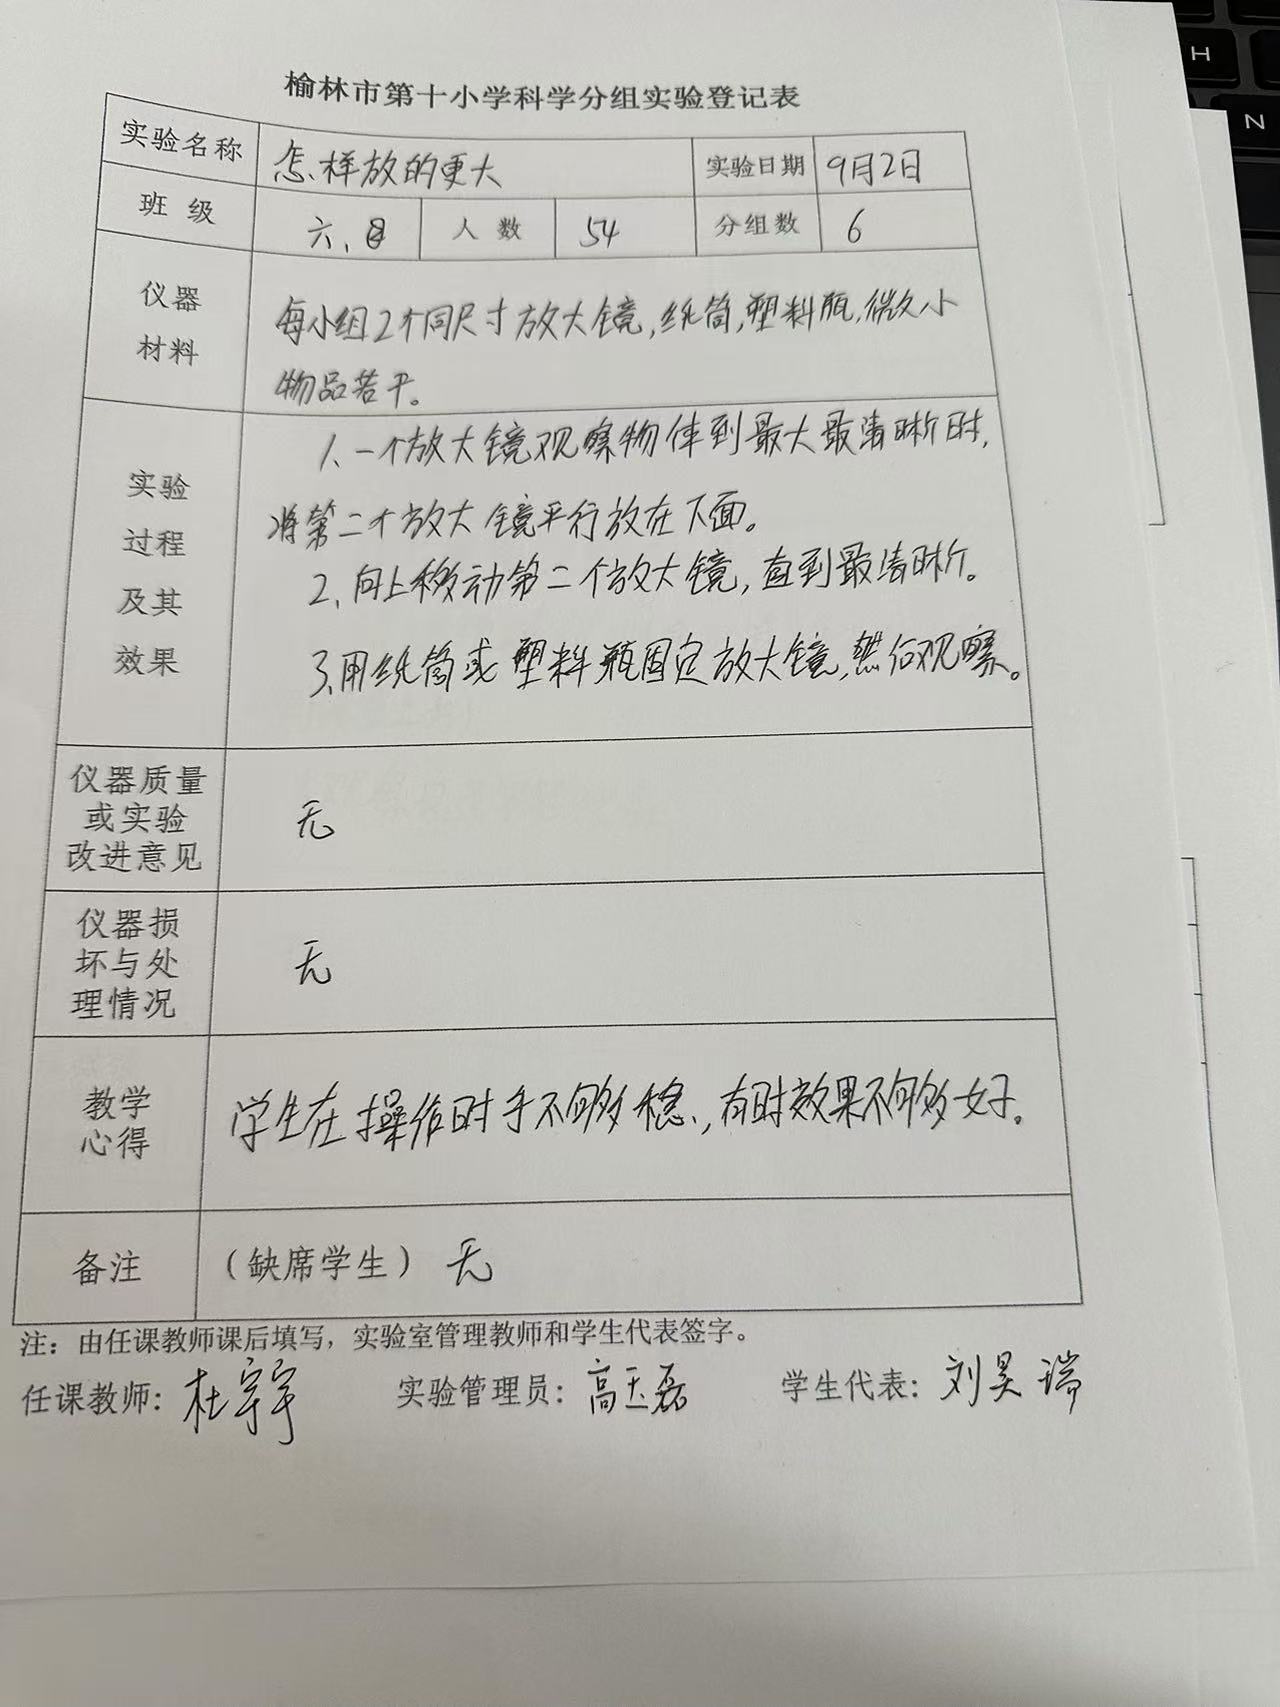 榆林市第十小学科学分组实验登记表
实验名称 怎样放的更大 实验日期 9月2日
班 级 六、 人 数 54 分组数 6
仪器
材料
每小组2个同尺寸放大镜,纸筒,塑料瓶,微小
物品若干。
实验
过程
及其
效果
1、一个放大镜观察物体到最大最清晰时,
将第二个放大镜平行放在下面。
2、向上移动第二个放大镜,直到最清晰。
3、用纸筒或塑料瓶固定放大镜,然后观察。
仪器质量
或实验
改进意见
无
仪器损
坏与处
理情况
无
教学
心得
学生在操作时手不够稳、,有时效果不够好。
备注 (缺席学生) 无
注：由任课教师课后填写，实验室管理教师和学生代表签字。
任课教师：杜宇宇 实验管理员：高玉磊 学生代表：刘昊瑞
H
N